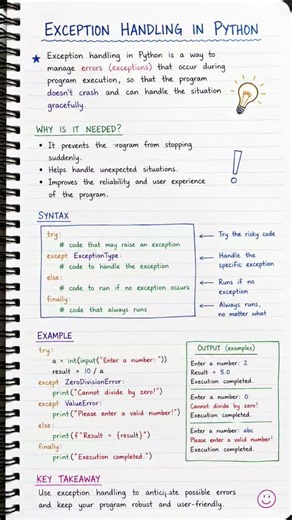 EXCEPTION HANDLING IN PYTHON
★ Exception handling in Python is a way to
manage errors (exceptions) that occur during
program execution, so that the program
doesn't crash and can handle the situation
gracefully.
WHY IS IT NEEDED?
• It prevents the program from stopping
suddenly.
• Helps handle unexpected situations.
• Improves the reliability and user experience
of the program.
!
SYNTAX
try:
# code that may raise an exception
except ExceptionType:
# code to handle the exception
else:
# code to run if no exception occurs
finally:
# code that always runs
← Try the risky code
← Handle the
specific exception
← Runs if no
exception
← Always runs,
no matter what
EXAMPLE
try:
a = int(input("Enter a number: "))
result = 10 / a
except ZeroDivisionError:
print("Cannot divide by zero!")
except ValueError:
print("Please enter a valid number!")
else:
print(f"Result = {result}")
finally:
print("Execution completed.")
OUTPUT (examples)
Enter a number: 2
Result = 5.0
Execution completed.
Enter a number: 0
Cannot divide by zero!
Execution completed.
Enter a number: abc
Please enter a valid number!
Execution completed.
KEY TAKEAWAY
Use exception handling to anticipate possible errors
and keep your program robust and user-friendly.